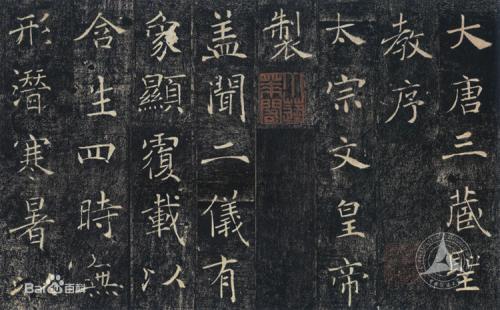 大唐三藏聖
教序
太宗文皇帝
製
盖聞二儀有
象顯覆載以
含生四時無
形潜寒暑
Baidu百科